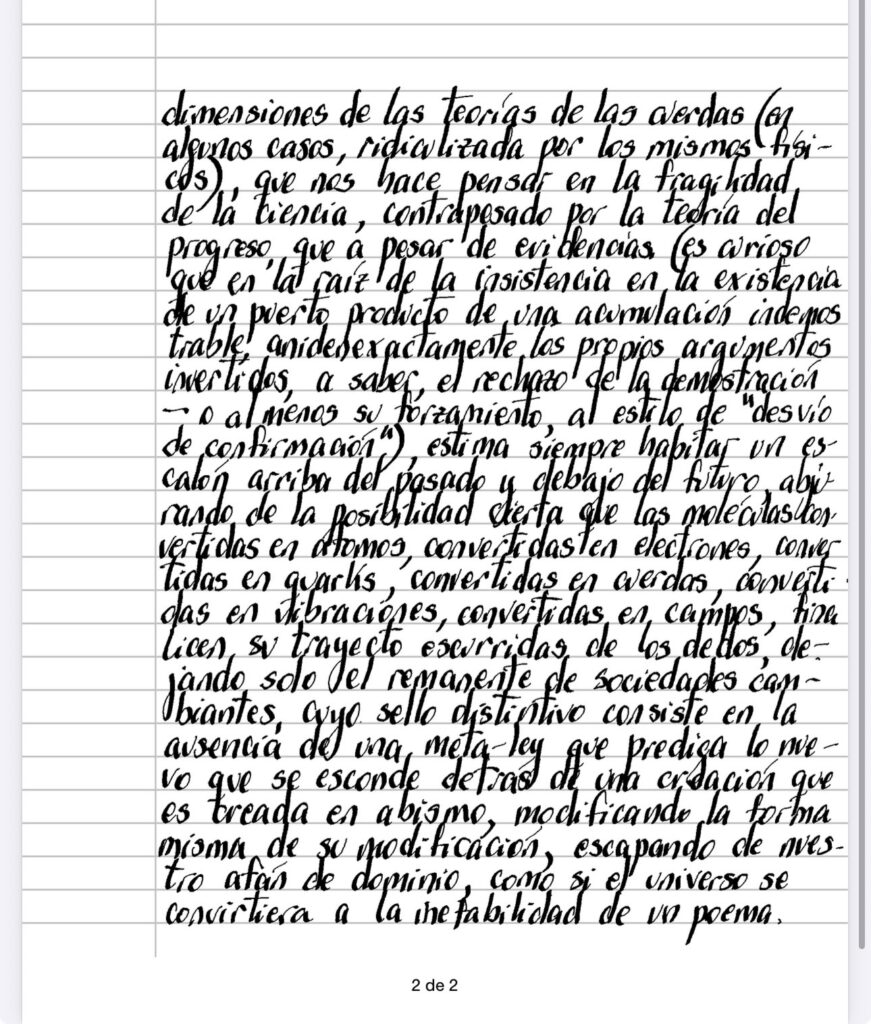 dimensiones de las teorías de las cuerdas (en
algunos casos, ridiculizada por los mismos físi-
cos), que nos hace pensar en la fragilidad
de la ciencia, contrapesado por la teoría del
progreso, que a pesar de evidencias (es curioso
que en la raíz de la insistencia en la existencia
de un puerto producto de una acumulación indemos
trable, aniden exactamente los propios argumentos
invertidos, a saber, el rechazo de la demostración
– o al menos su forzamiento, al estilo de "desvío
de confirmación"), estima siempre habitar un es-
calón arriba del pasado y debajo del futuro, abju-
rando de la posibilidad cierta que las moléculas con-
vertidas en átomos, convertidas en electrones, conver
tidas en quarks, convertidas en cuerdas, converti-
das en vibraciones, convertidas en campos, fina
licen su trayecto escurridas de los dedos, de-
jando solo el remanente de sociedades cam-
biantes, cuyo sello distintivo consiste en la
ausencia de una meta-ley que prediga lo nue-
vo que se esconde detrás de una creación que
es creada en abismo, modificando la forma
misma de su modificación, escapando de nues-
tro afán de dominio, como si el universo se
convirtiera a la inefabilidad de un poema.
2 de 2